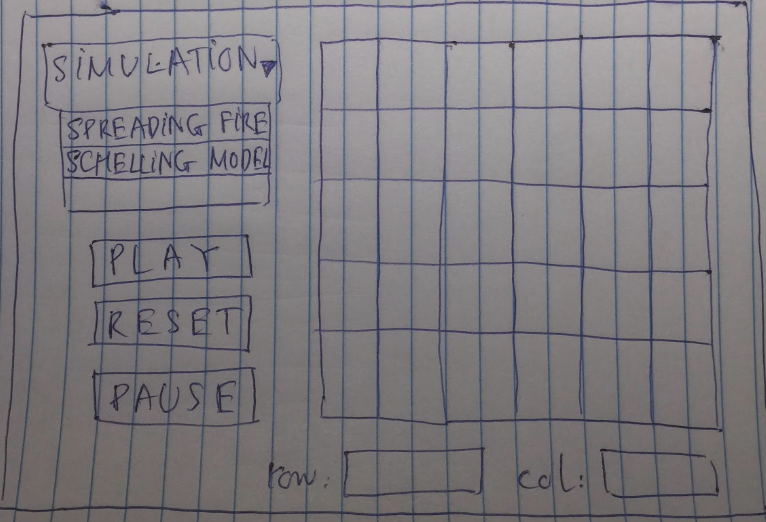 SIMULATION
SPREADING FIRE
SCHELLING MODEL
PLAY
RESET
PAUSE
row: col: